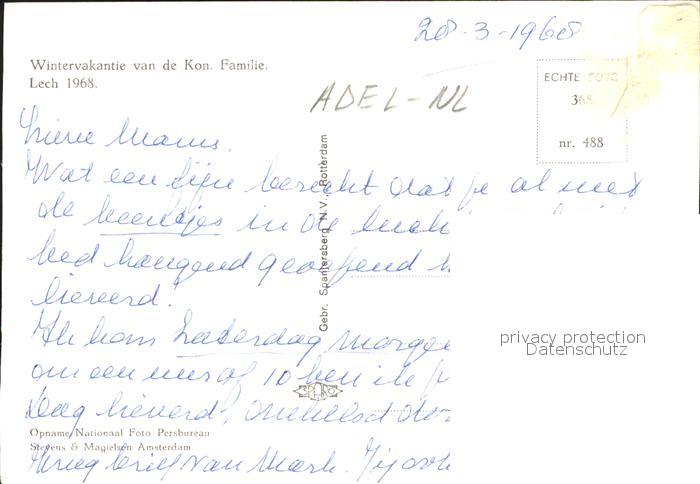 28-3-1968
Wintervakantie van de Kon. Familie.
Lech 1968.
ADEL-NL
ECHTE FOTO
368
nr. 488
Lieve Mams,
Wat een fijn bericht dat je al met
de beentjes in de
bed hangend geoefend h
lieverd!
Ik kom Zaterdag morge
om een uur of 10 ben ik
Dag lieverd!, omhelsd door
Kreeg brief van Mark. Jij ook
Gebr. Spanjersberg N.V., Rotterdam
SPARO
Opname Nationaal Foto Persbureau
Stevens & Magielsen Amsterdam
privacy protection
Datenschutz